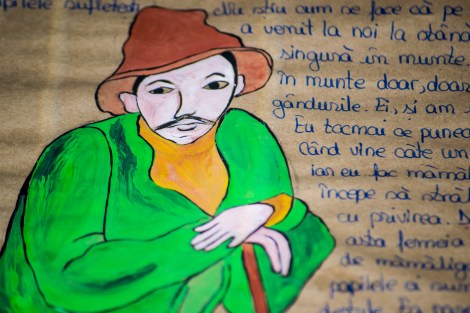 pilele sufletești
Nu știu cum se face că pe
a venit la noi la stână
singură în munte.
în munte doar, doar
gândurile. Ei, și am
Eu tocmai ce punec
când vine câte un
ian eu fac mămăl
începe să stră
cu privirea. D
asta femeia
de mămălig
papilele ei